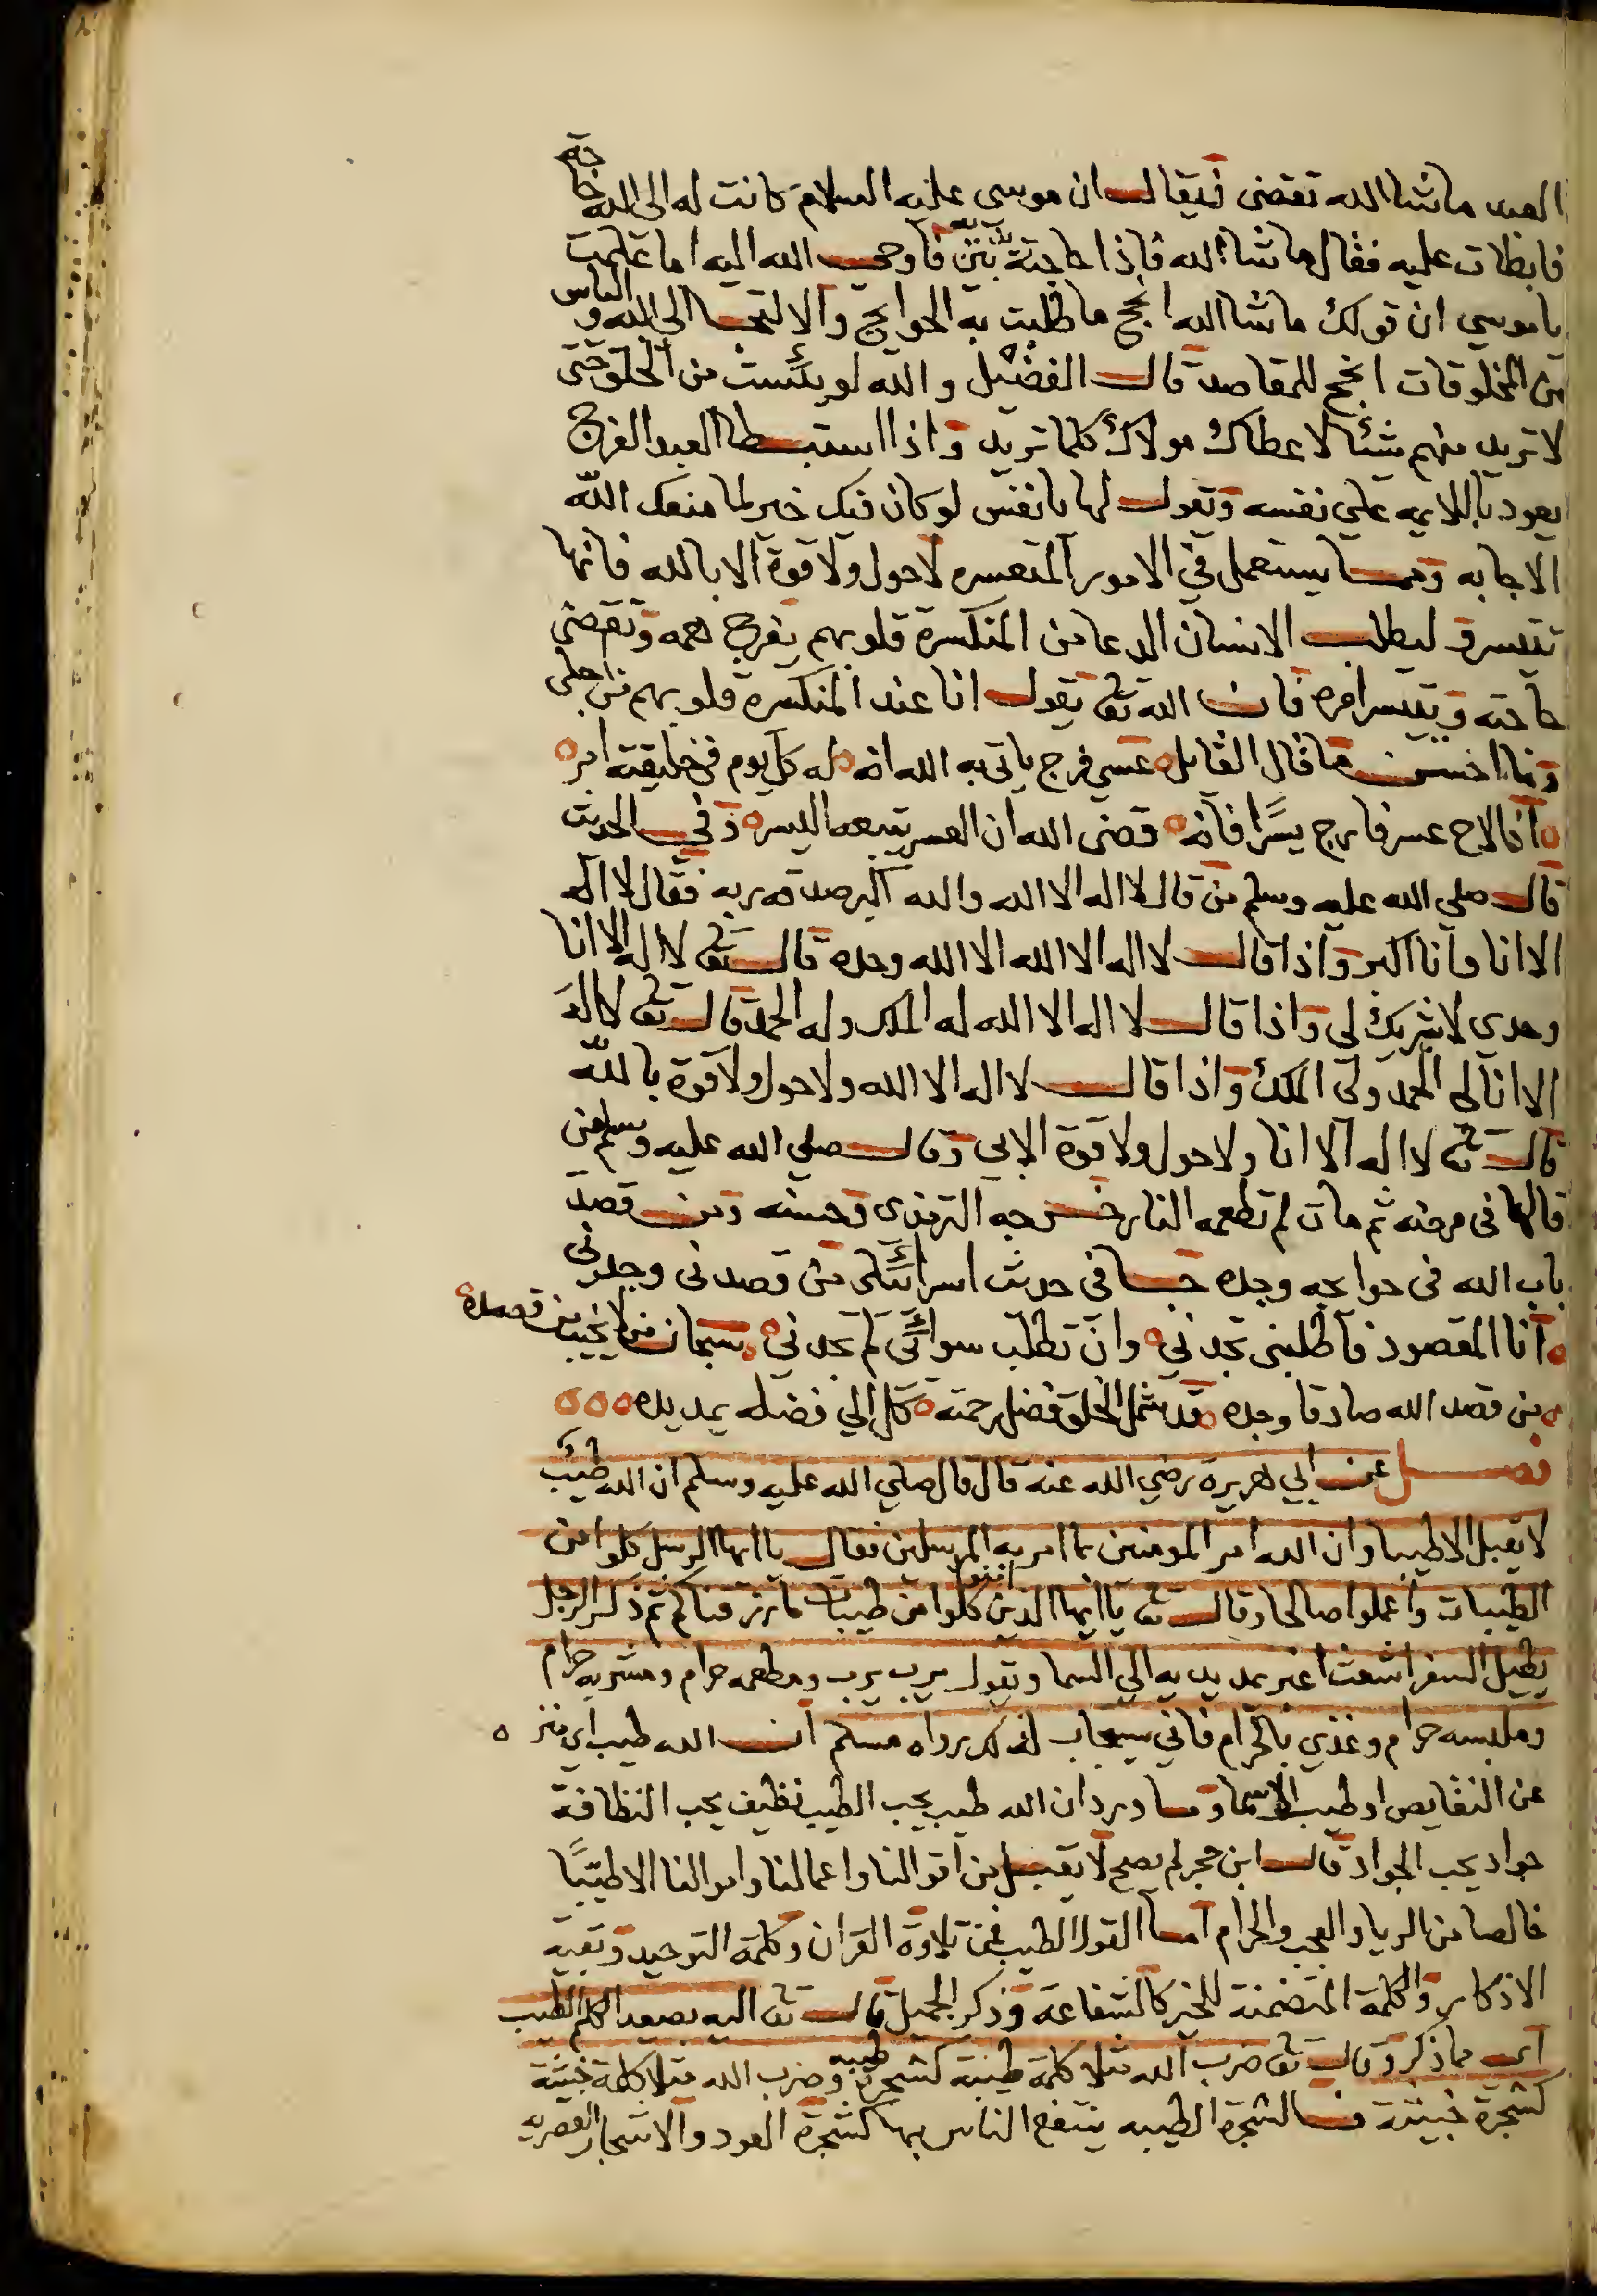 العبد ماشا الله تقضى فيقال ان موسى عليه السلام كانت له الى الله حاجة
فابطات عليه فقال ماشا الله فاذا حاجته بين يديه فاوحى الله اليه اما علمت
ياموسى ان قولك ماشا الله انجح ما طلبت به الحوايج والالتجا الى الله والياس
من المخلوقات انجح للمقاصد قال الفضيل والله لو يئست من الخلق حتى
لا تريد منهم شيئا لاعطاك مولاك كلما تريد واذا استبطا العبد الفرج
يعود باللايمه على نفسه وتقول لها يانفس لو كان فيك خير لما منعك الله
الاجابه ومما يستعمل في الامور المتعسره لاحول ولا قوة الا بالله فانها
تتيسر وليطلب الانسان الدعا من المنكسرة قلوبهم يفرج همه وتقضى
حاجته ويتيسر امره فان الله تعا يقول انا عند المنكسرة قلوبهم من اجلى
وما احسن ما قال القايل عسى فرج ياتى به الله انه له كل يوم فى خليقته امر
اذا لاح عسر فارج يسرا فانه قضى الله ان العسر يتبعه اليسر وفي الحديث
قال صلى الله عليه وسلم من قال لا اله الا الله والله اكبر صدقه ربه فقال لا اله
الا انا وانا اكبر واذا قال لا اله الا الله الا الله وحده قال تعا لا اله الا انا
وحدى لا شريك لى واذا قال لا اله الا الله له الملك وله الحمد قال تعا لا اله
الا انا لى الحمد ولى الملك واذا قال لا اله الا الله ولا حول ولا قوة بالله
قال تعا لا اله الا انا ولا حول ولا قوة الا بى وقال صلى الله عليه وسلم من
قالها فى مرضه ثم مات لم تطعمه النار خرجه الترمذى وحسنه ومن قصد
باب الله فى حوايجه وجده جا فى حديث اسرائيلى من قصدنى وجدنى
انا المقصود فاطلبنى تجدني وان تطلب سوائى لم تجدني سبحان من لا يخيب من قصده
من قصد الله صادقا وجده قد شمل الخلق فضل رحمته كل الى فضله يمد يده
فصل عن ابي هريرة رضي الله عنه قال قال صلي الله عليه وسلم ان الله طيب
لا يقبل الا طيبا وان الله امر المومنين بما امر به المرسلين فقال يا ايها الرسل كلوا من
الطيبات واعملوا صالحا وقال تعا يا ايها الذين امنوا كلوا من طيبات ما رزقناكم ثم ذكر الرجل
يطيل السفر اشعث اغبر يمد يديه الي السما ويقول يرب يرب ومطعمه حرام ومشربه حرام
وملبسه حرام وغذي بالحرام فاني يستجاب لذلك رواه مسلم ان الله طيب اي منزه
عن النقايص او طيب الاسما وما ورد ان الله طيب يحب الطيب نظيف يحب النظافة
جواد يحب الجواد قال ابن حجر لم يصح لا يقبل من اقوالنا واعمالنا واموالنا الا طيبا
خالصا من الريا والعجب والحرام اما القول الطيب فمن تلاوة القران وكلمة التوحيد وبقية
الاذكار والكلمة المتضمنة للخير كالشفاعة وذكر الجميل قال تعا اليه يصعد الكلم الطيب
اى مما ذكر وقال تعا ضرب الله مثلا كلمة طيبة كشجرة طيبه وضرب الله مثلا كلمة خبيثة
كشجرة خبيثة فالشجرة الطيبه ينتفع الناس بها كشجرة العود والاشجار العصريه